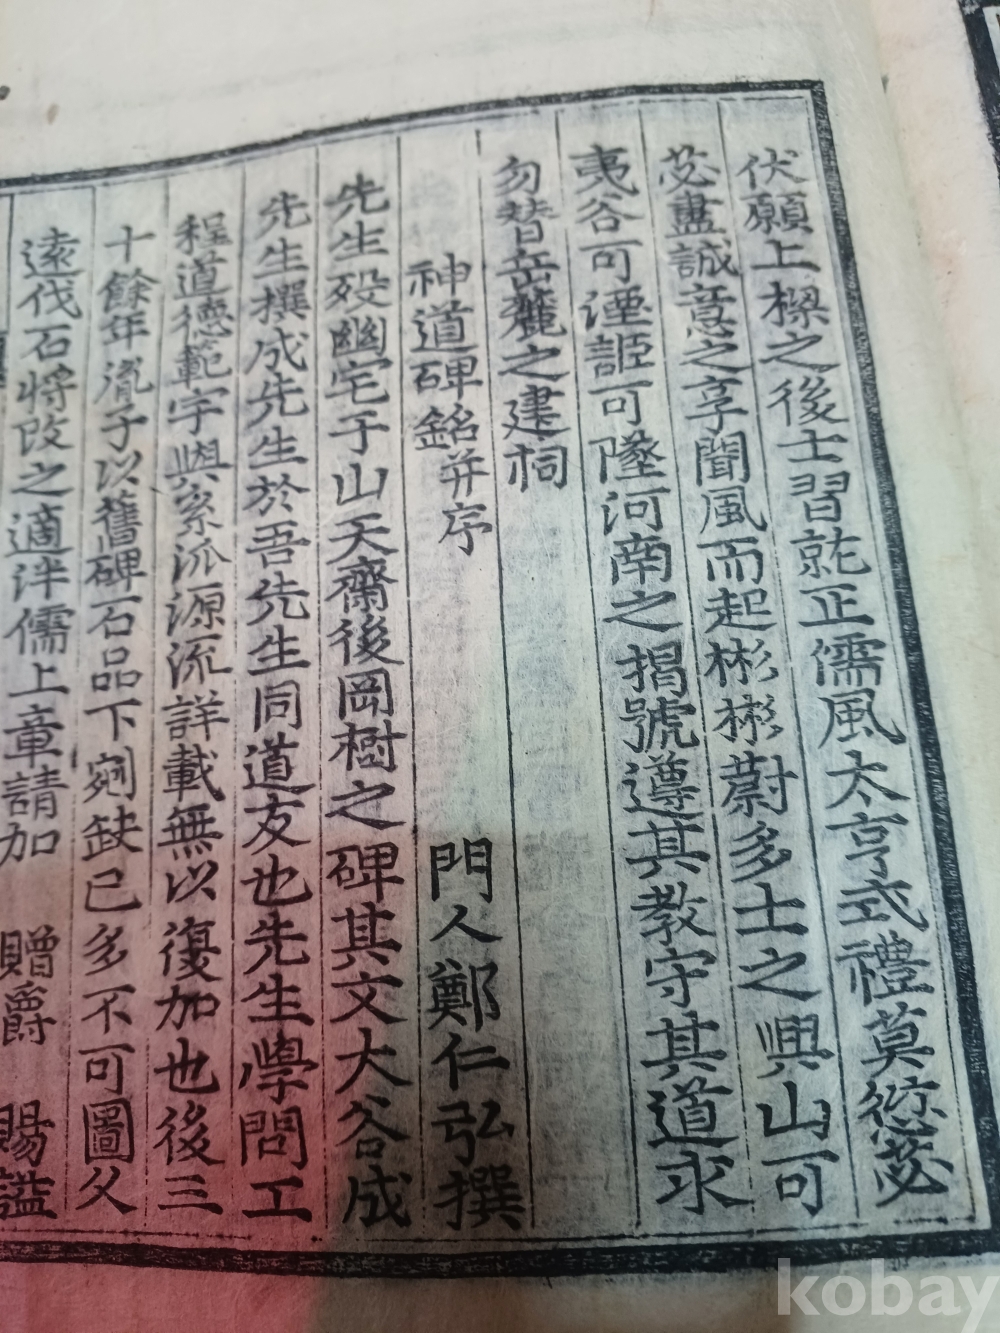 伏願上樑之後士習就正儒風太亨式禮莫愆苾
苾盡誠意之享聞風而起彬彬蔚多士之興山可
夷谷可湮詎可墜河南之揭號遵其教守其道永
勿替岳麓之建祠
神道碑銘并序
門人鄭仁弘撰
先生歿幽宅于山天齋後岡樹之碑其文大谷成
先生撰成先生於吾先生同道友也先生學問工
程道德範宇與系派源流詳載無以復加也後三
十餘年胤子以舊碑石品下剜缺已多不可圖久
遠伐石將改之適泮儒上章請加 贈爵 賜諡
kobay